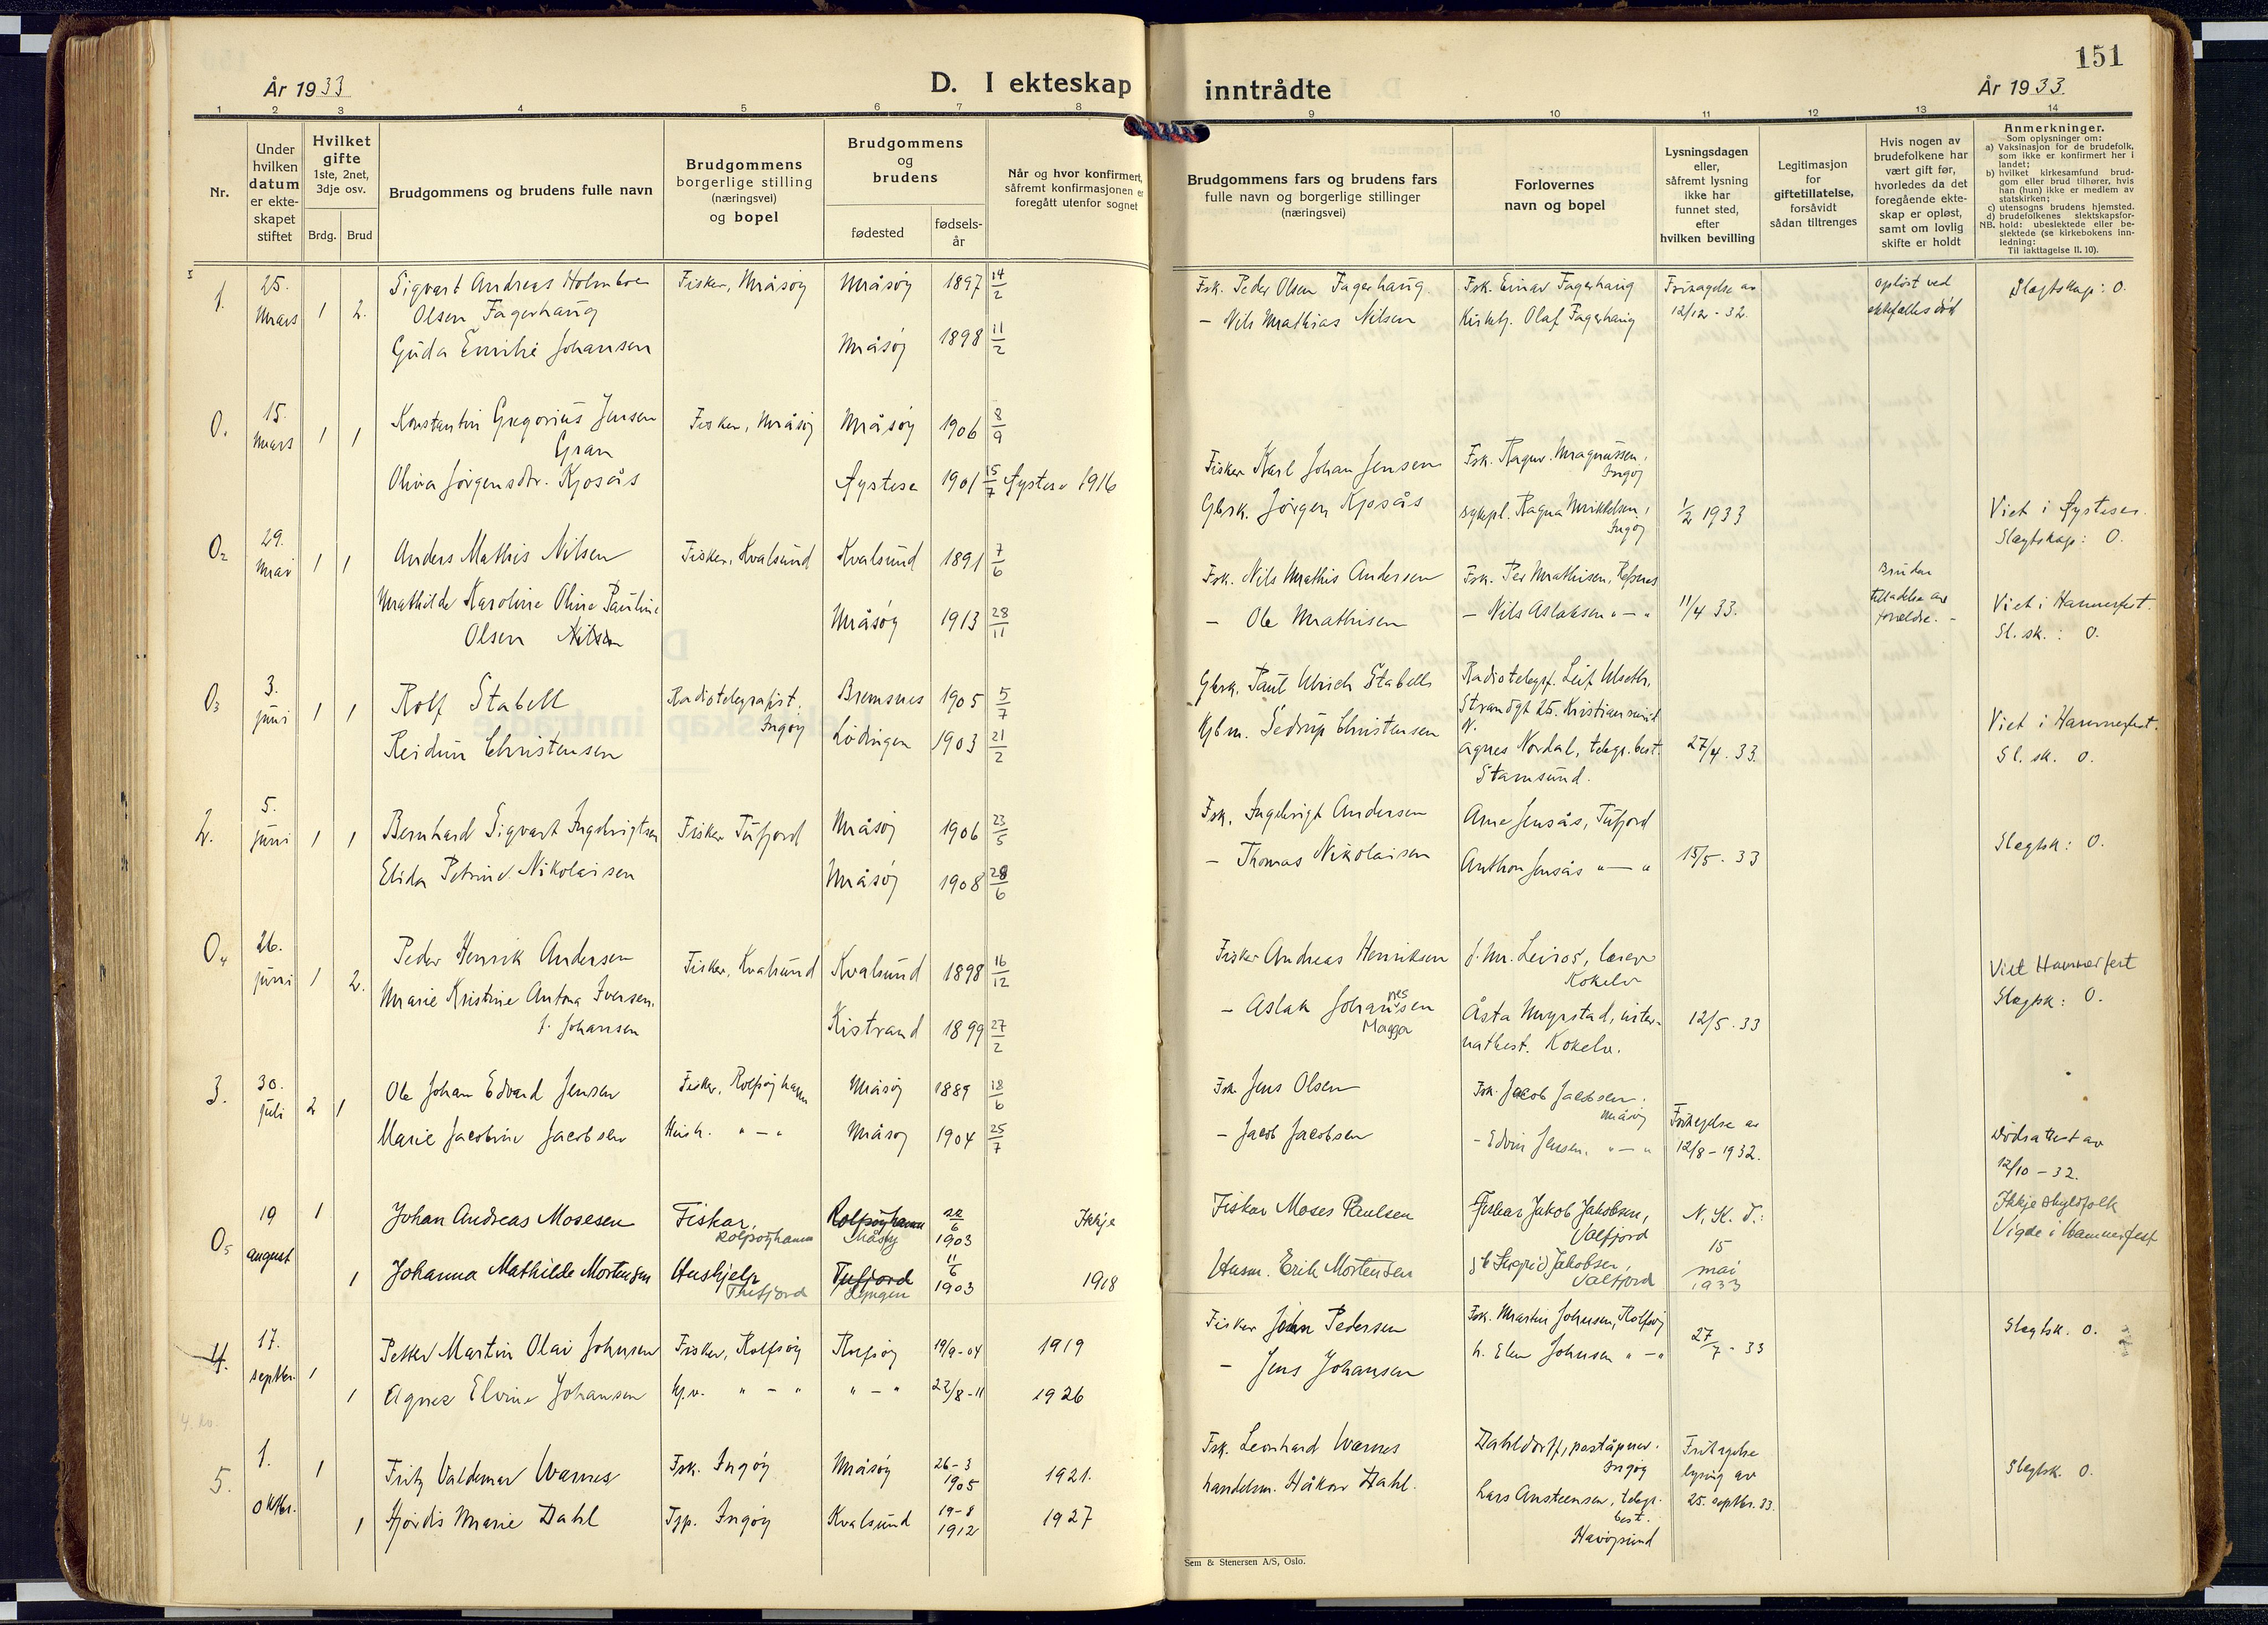 151
År 1933
D. I ekteskap inntrådte
År 1933.
1 2 3 4 5 6 7 8 9 10 11 12 13 14
Nr.
Under hvilken datum er ekteskapet stiftet
Hvilket gifte 1ste, 2net, 3dje osv.
Brdg. Brud
Brudgommens og brudens fulle navn
Brudgommens borgerlige stilling (næringsvei) og bopel
Brudgommens og brudens
fødested
fødsels-år
Når og hvor konfirmert, såfremt konfirmasjonen er foregått utenfor sognet
Brudgommens fars og brudens fars fulle navn og borgerlige stillinger (næringsvei)
Forlovernes navn og bopel
Lysningsdagen eller, såfremt lysning ikke har funnet sted, efter hvilken bevilling
Legitimasjon for giftetillatelse, forsåvidt sådan tiltrenges
Hvis nogen av brudefolkene har vært gift før, hvorledes da det foregående ekteskap er opløst, samt om lovlig skifte er holdt
Anmerkninger.
Som oplysninger om:
a) Vaksinasjon for de brudefolk, som ikke er konfirmert her i landet;
b) hvilket kirkesamfund brudgom eller brud tilhører, hvis han (hun) ikke er medlem av statskirken;
c) utensogns brudens hjemsted.
d) brudefolkenes slektskapsforhold: ubeslektede eller beslektede (se kirkebokens innledning:
NB.
Til iakttagelse II. 10).
1. 25. Mars 1 2. Sigvart Andreas Holmboe Olsen Fagerhaug Fisker, Måsøy Måsøy 1897 14/2 Fsk. Peder Olsen Fagerhaug. Fsk. Einar Fagerhaug Fritagelse av 12/12-32. opløst ved ektefælles død Slegtskap: 0.
Guda Emilie Johansen Måsøy 1898 11/2 – Nils Mathias Nilsen Kirketj. Olaf Fagerhaug
0. 15. Mars 1 1 Konstantin Gregorius Jensen Gran Fisker, Måsøy Måsøy 1906 8/9 Fisker Karl Johan Jensen Fsk. Ragnv. Magnussen, Ingøy
Oliva Jørgensdtr. Kjosås Øystese 1901 15/7 Øystese 1916 Gbrk. Jørgen Kjosås sykepl. Ragna Mikkelsen, Ingøy 1/2 1933 Viet i Øystese. Slegtskap: 0.
02 29. Mai 1 1 Anders Mathis Nilsen Fisker, Kvalsund Kvalsund 1891 7/6 Fsk. Nils Mathis Andersen Fsk. Per Mathisen, Brudens tilladelse av forældre. –
Mathilde Karoline Oline Pauline Olsen Nilsen Måsøy 1913 28/11 – Ole Mathisen – Nils Aslaksen " – " 11/4 33. Viet i Hammerfest. Sl. sk.: 0.
03 3. juni 1 1 Rolf Stabell Radiotelegrafist. Ingøy Bremsnes 1905 5/7 Gbrk. Paul Ulrich Stabell Radiotelegrf. Leif Ulseth, Strandgt 25. Kristiansund N.
Reidun Christensen Lødingen 1903 21/2 Kjbm. Sedrup Christensen Agnes Nordal, telegr.best. Stamsund. 27/4. 33. Viet i Hammerfest. Sl. sk. 0.
2. 5. juni 1 1 Bernhard Sigvart Ingebrigtsen Fisker Tufjord Måsøy 1906 23/5 Fsk. Ingebrigt Andersen Arne Jensås, Tufjord
Elida Petrine Nikolaisen Måsøy 1908 28/6 – Thomas Nikolaisen Anthon Jensås " – " 15/5. 33 Slegtsk: 0.
04 26. juni 1 2. Peder Henrik Andersen Fisker, Kvalsund Kvalsund 1898 16/12 Fisker Andreas Henriksen J. M. Leiros, lærer Kokelv
Marie Kristine Antona Iversen. f. Johansen Kistrand 1899 27/2 – Aslak Johannesen Magga Åsta Myrstad, internatbest. Kokelv. 12/5. 33 Viet Hammerfest Slegtsk: 0.
3. 30. juli 2 1 Ole Johan Edvard Jensen Fisker, Rolfsøyhamn Måsøy 1889 18/6 Fsk. Jens Olsen Fsk. Jacob Jacobsen. Måsøy
Marie Jacobine Jacobsen Hush. " – " Måsøy 1904 25/7 – Jacob Jacobsen – Edvin Jensen. " – " Fritagelse av 12/8-1932. Dødsattest av 12/10-32.
05 19 august 1 Johan Andreas Mosesen Fiskar, Rolfsøyhamn Rolfsøyhamn Måsøy 22/6 1903 Ikkje Fiskar Moses Paulsen Fiskar Jakob Jakobsen, Valfjord N. K. T.: 15 mai 1933 Ikkje skyldfolk Vigde i Hammerfest
1 Johanna Mathilde Mortensen Hushjelp Tufjord Tufjord Lyngen 11/6 1903 1918 Husm. Erik Mortensen Jakobsen, Valfjord
4. 17. septbr. 1 Petter Martin Olai Johnsen Fisker, Rolfsøy Rolfsøy 19/9-04 1919 Fisker John Pedersen Fsk. Martin Johnsen, Rolfsøy 27/7 - 33 Slegtsk. 0.
1 Agnes Elvine Johansen Hj.v. " – " " – " 22/8-11 1926 – Jens Johansen h. Elen Johnsen " – "
5. 1. oktbr. 1 Fritz Valdemar Warnes Fsk. Ingøy Måsøy 26-3 1905 1921. Fsk. Leonhard Warnes Dahldorff, poståpner. Ingøy Fritagelse lysing av 25. septbr. 33. Slegtsk. 0.
1 Hjørdis Marie Dahl Tjp. Ingøy Kvalsund 19-8 1912 1927 handelsm. Håkon Dahl. Lars Austeensen, telegr. best. Havøysund
Sem & Stenersen A/S, Oslo.